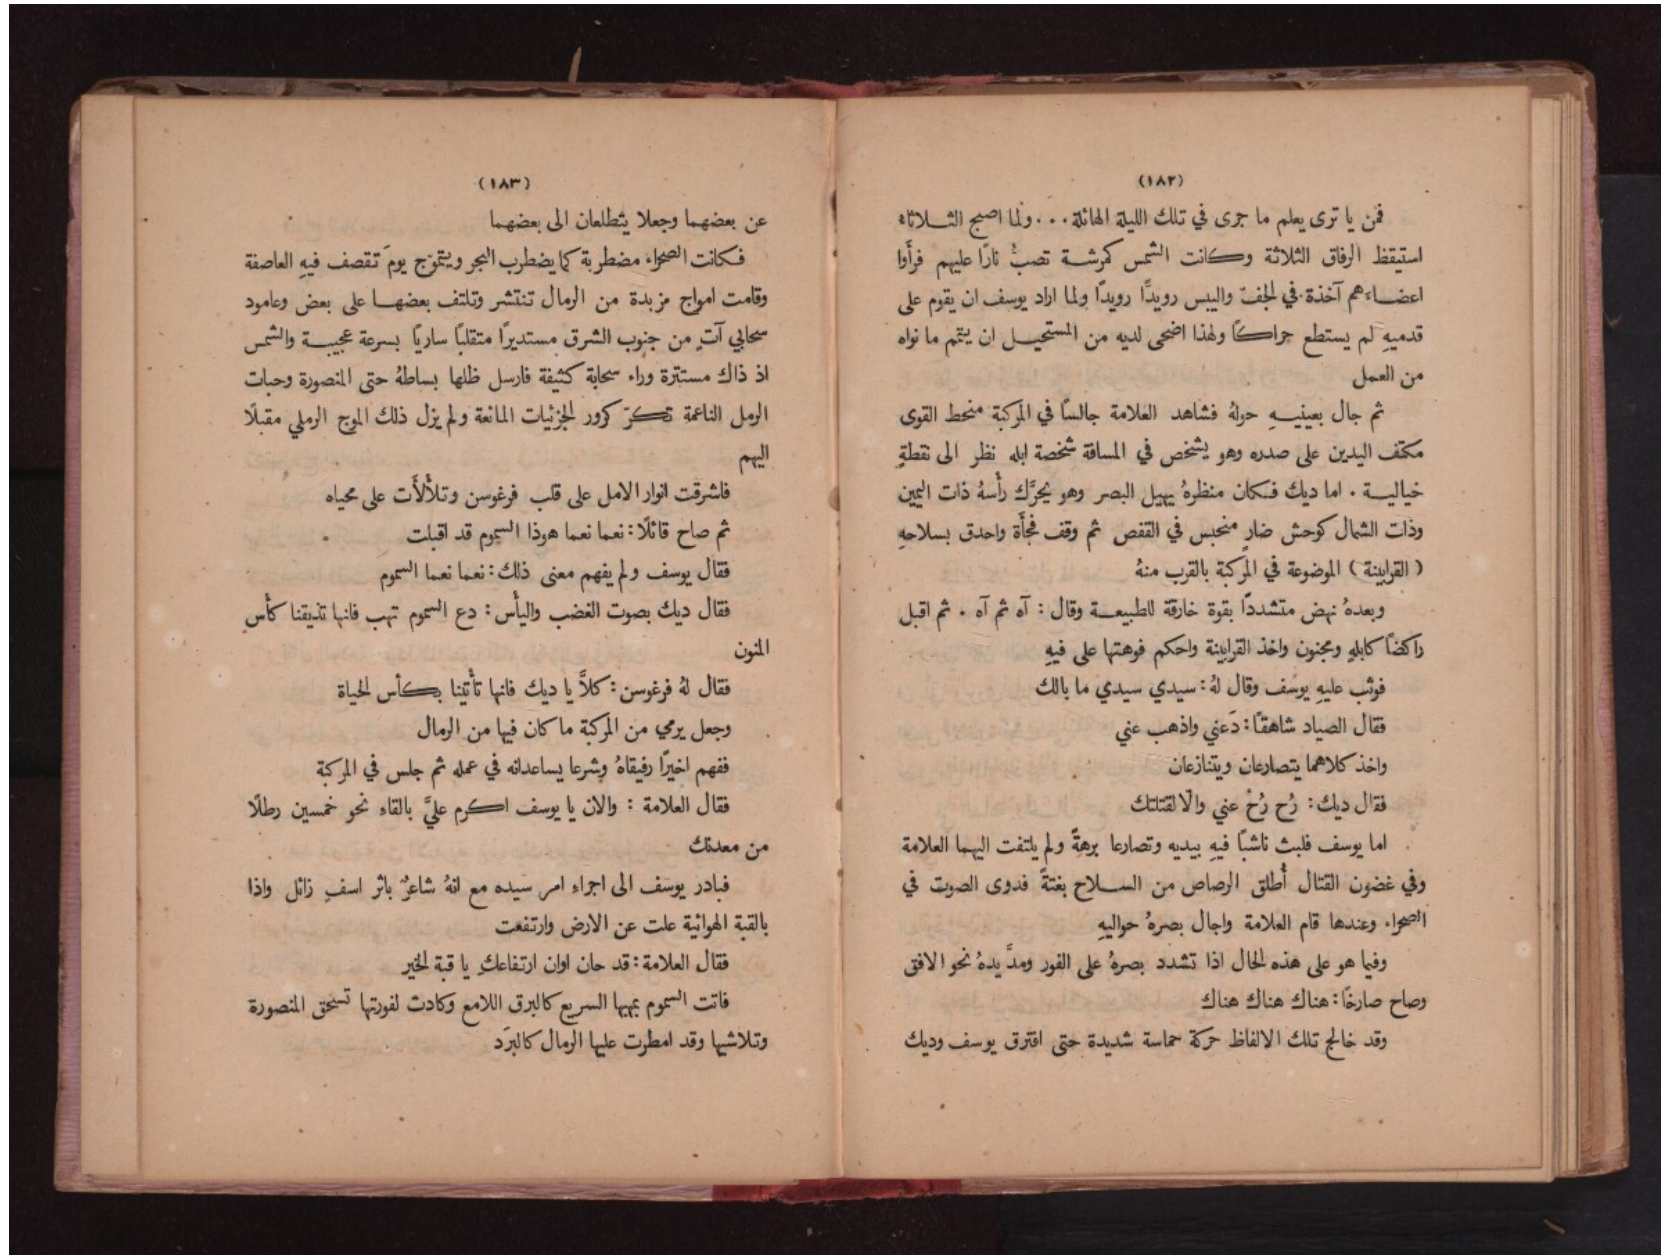 (١٨٢)
فمن يا ترى يعلم ما جرى في تلك الليلة الهائلة . . . ولما اصبح الثلاثاء
استيقظ الرفاق الثلاثة وكانت الشمس كمرشة تصبُّ نارًا عليهم فرأَوا
اعضاءهم آخذة في الجفّ واليبس رويدًا رويدًا ولما اراد يوسف ان يقوم على
قدميهِ لم يستطع حراكًا ولهذا اضحى لديه من المستحيل ان يتمم ما نواه
من العمل
ثم جال بعينيهِ حولهُ فشاهد العلامة جالسًا في المركبة منحط القوى
مكتف اليدين على صدره وهو يشخص في المسافة شخصة ابله نظر الى نقطةٍ
خيالية . اما ديك فكان منظرهُ يهيل البصر وهو يحرَّك رأسهُ ذات اليمين
وذات الشمال كوحش ضارٍ منحبس في القفص ثم وقف فجأَة واحدق بسلاحهِ
( القرابينة ) الموضوعة في المركبة بالقرب منهُ
وبعدهُ نهض متشددًا بقوة خارقة للطبيعة وقال : آه ثم آه . ثم اقبل
راكضًا كابلهٍ ومجنون واخذ القرابينة واحكم فوهتها على فيهِ
فوثب عليهِ يوسف وقال لهُ : سيدي سيدي ما بالك
فقال الصياد شاهقًا : دَعني واذهب عني
واخذ كلاهما يتصارعان ويتنازعان
فقال ديك : رُح رُح عني والّا لقتلتك
اما يوسف فلبث ناشبًا فيهِ بيديه وتصارعا برهةً ولم يلتفت اليهما العلامة
وفي غضون القتال أُطلق الرصاص من السلاح بغتةً فدوى الصوت في
الصحراء وعندها قام العلامة واجال بصرهُ حواليهِ
وفيما هو على هذه الحال اذا تشدد بصرهُ على الفور ومدَّ يدهُ نحو الافق
وصاح صارخًا : هناك هناك هناك
وقد خالج تلك الالفاظ حركة حماسة شديدة حتى افترق يوسف وديك
(١٨٣)
عن بعضهما وجعلا يتطلعان الى بعضهما
فكانت الصحراء مضطربة كما يضطرب البحر ويتموّج يومَ تقصف فيهِ العاصفة
وقامت امواج مزبدة من الرمال تنتشر وتلتف بعضها على بعض وعامود
سحابي آتٍ من جنوب الشرق مستديرًا متقلبًا ساريًا بسرعة عجيبة والشمس
اذ ذاك مستترة وراء سحابة كثيفة فارسل ظلها بساطهُ حتى المنصورة وحبات
الرمل الناعمة تكرّ كرور الجزئيات المائعة ولم يزل ذلك الموج الرملي مقبلًا
اليهم
فاشرقت انوار الامل على قلب فرغوسن وتلأْلأَت على محياه
ثم صاح قائلًا : نعما نعما هوذا السموم قد اقبلت
فقال يوسف ولم يفهم معنى ذلك : نعما نعما السموم
فقال ديك بصوت الغضب واليأْس : دع السموم تهب فانها تذيقنا كأْس
المنون
فقال لهُ فرغوسن : كلَّا يا ديك فانها تأْتينا بكأْس الحياة
وجعل يرمي من المركبة ما كان فيها من الرمال
ففهم اخيرًا رفيقاهُ وشرعا يساعدانه في عمله ثم جلس في المركبة
فقال العلامة : والان يا يوسف اكرم عليَّ بالقاء نحو خمسين رطلًا
من معدنك
فبادر يوسف الى اجراء امر سيده مع انهُ شاعرٌ باثر اسفٍ زائل واذا
بالقبة الهوائية علت عن الارض وارتفعت
فقال العلامة : قد حان اوان ارتفاعكِ يا قبة الخير
فاتت السموم بمهبها السريع كالبرق اللامع وكادت لفورتها تسحق المنصورة
وتلاشيها وقد امطرت عليها الرمال كالبرَد